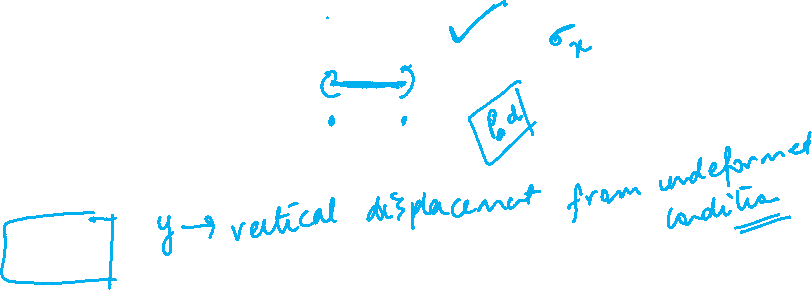 σx
y → vertical displacement from undeformed
condition